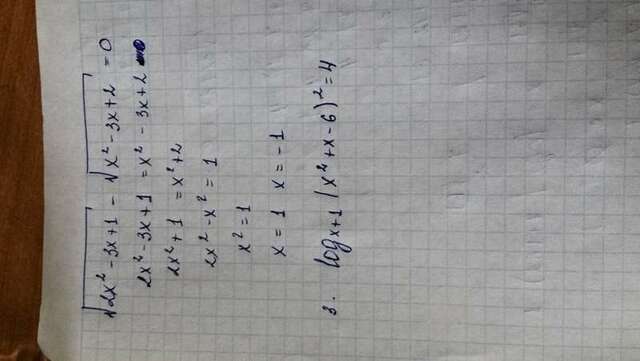 √(2x² - 3x + 1) - √(x² - 3x + 2) = 0
2x² - 3x + 1 = x² - 3x + 2
2x² + 1 = x² + 2
2x² - x² = 1
x² = 1
x = 1 x = -1
3. log_{x+1} (x² + x - 6)² = 4